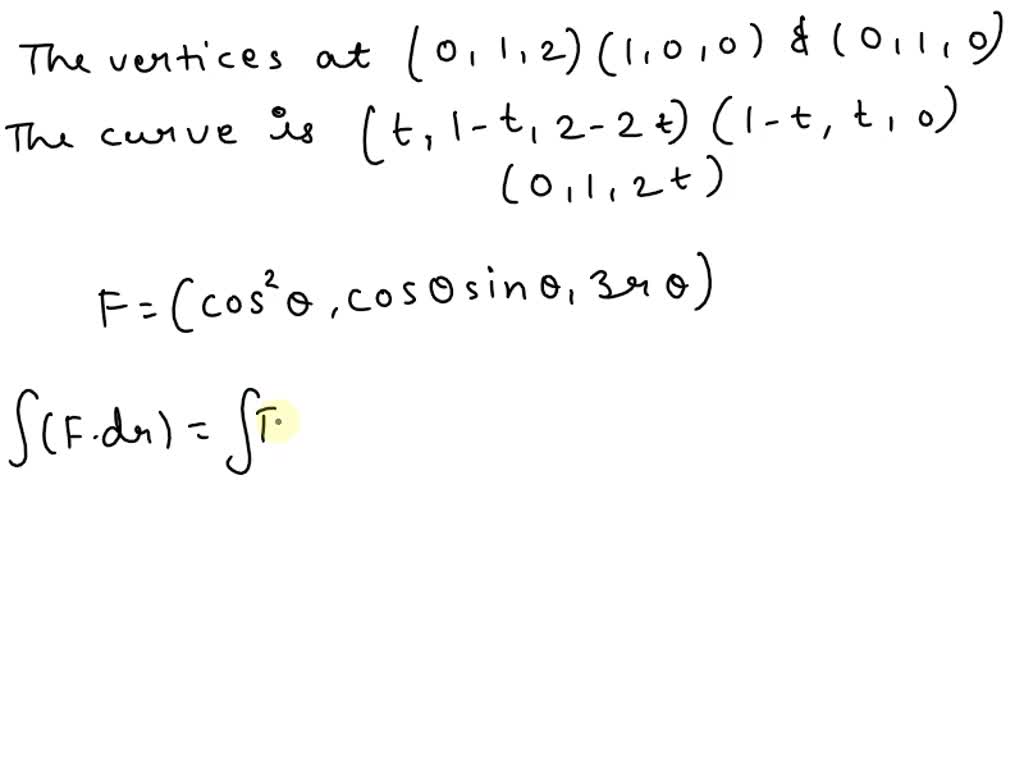 The vertices at (0,1,2)(1,0,0) & (0,1,0)
The curve is (t, 1-t, 2-2t) (1-t, t, 0)
(0,1,2t)
F = (cos²θ, cosθ sinθ, 3rθ)
∫(F.dr) = ∫F.